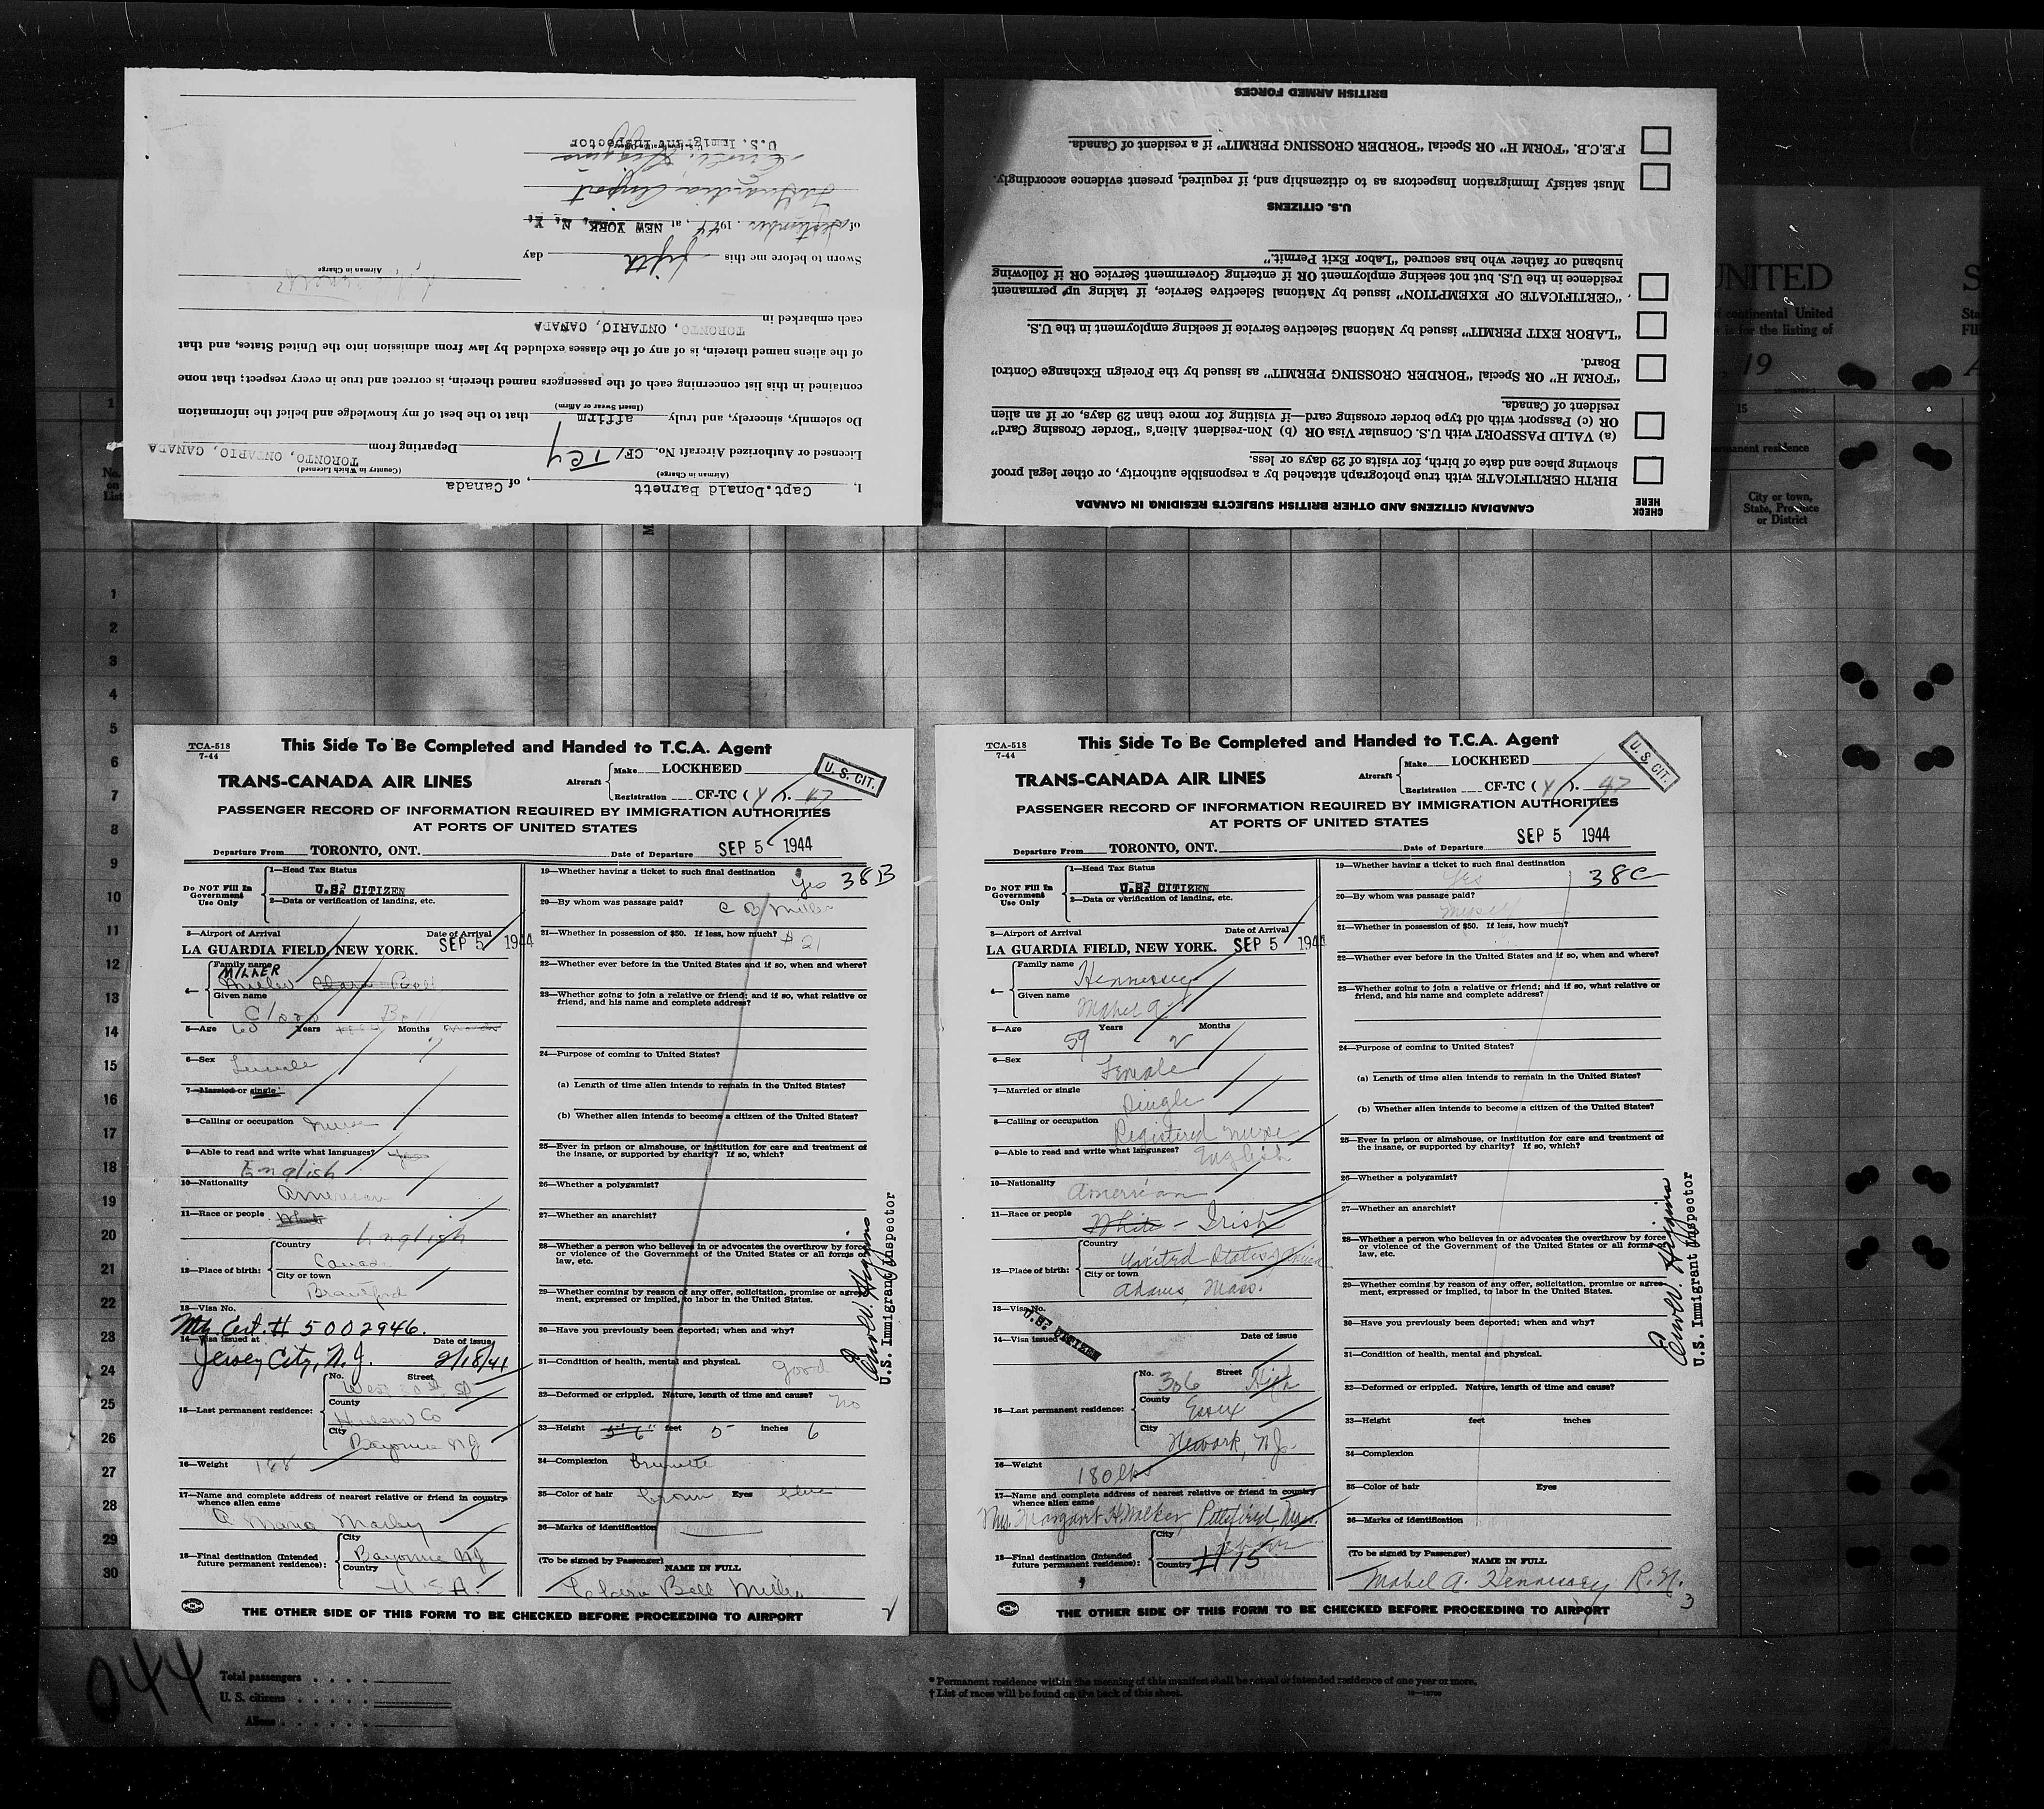 I, Capt. Donald Barnett, of Canada
(Airman in Charge) (Country in Which Licensed)
Licensed or Authorized Aircraft No. CF/TCY Departing from TORONTO, ONTARIO, CANADA
Do solemnly, sincerely, and truly affirm that to the best of my knowledge and belief the information
(Insert Swear or Affirm)
contained in this list concerning each of the passengers named therein, is correct and true in every respect; that none
of the aliens named therein, is of any of the classes excluded by law from admission into the United States, and that
each embarked in TORONTO, ONTARIO, CANADA
Airman in Charge
Sworn to before me this fifth day
of September, 1944, at NEW YORK, N. Y.
LaGuardia Airport
U.S. Immigrant Inspector
CHECK HERE
CANADIAN CITIZENS AND OTHER BRITISH SUBJECTS RESIDING IN CANADA
BIRTH CERTIFICATE with true photograph attached by a responsible authority, or other legal proof
showing place and date of birth, for visits of 29 days or less.
(a) VALID PASSPORT with U.S. Consular Visa OR (b) Non-resident Alien's "Border Crossing Card"
OR (c) Passport with old type border crossing card—if visiting for more than 29 days, or if an alien
resident of Canada.
"FORM H" OR Special "BORDER CROSSING PERMIT" as issued by the Foreign Exchange Control
Board.
"LABOR EXIT PERMIT" issued by National Selective Service if seeking employment in the U.S.
"CERTIFICATE OF EXEMPTION" issued by National Selective Service, if taking up permanent
residence in the U.S. but not seeking employment OR if entering Government Service OR if following
husband or father who has secured "Labor Exit Permit."
U.S. CITIZENS
Must satisfy Immigration Inspectors as to citizenship and, if required, present evidence accordingly.
F.E.C.B. "FORM H" OR Special "BORDER CROSSING PERMIT" if a resident of Canada.
BRITISH ARMED FORCES
UNITED
continental United
is for the listing of
19
15
permanent residence
City or town,
State, Province
or District
No.
on
List
1
2
3
4
5
6
7
8
9
10
11
12
13
14
15
16
17
18
19
20
21
22
23
24
25
26
27
28
29
30
TCA-518
7-44
This Side To Be Completed and Handed to T.C.A. Agent
U. S. CIT.
TRANS-CANADA AIR LINES
Aircraft Make LOCKHEED
Registration CF-TC (Y) T. 47
PASSENGER RECORD OF INFORMATION REQUIRED BY IMMIGRATION AUTHORITIES
AT PORTS OF UNITED STATES
Departure From TORONTO, ONT. Date of Departure SEP 5 1944
Do NOT Fill In
Government
Use Only
1—Head Tax Status
U.S. CITIZEN
2—Data or verification of landing, etc.
3—Airport of Arrival Date of Arrival
LA GUARDIA FIELD, NEW YORK. SEP 5 1944
4— Family name
MILLER
Miller Clara Bell
Given name
Clara Bell
5—Age 60 Years Months
6—Sex Female
7—Married or single
8—Calling or occupation Nurse
9—Able to read and write what languages? Yes
English
10—Nationality American
11—Race or people White
English
12—Place of birth: Country Canada
City or town Brantford
13—Visa No.
Ntz. Cert. # 5002946.
14—Visa issued at Date of issue
Jersey City, N.J. 2/18/41
15—Last permanent residence: No. Street
West St
County
Hudson Co
City
Bayonne NJ
16—Weight 168
17—Name and complete address of nearest relative or friend in country
whence alien came
18—Final destination (Intended
future permanent residence): City Bayonne NJ
Country U.S.A.
19—Whether having a ticket to such final destination Yes 38B
20—By whom was passage paid? C B Miller
21—Whether in possession of $50. If less, how much? $21
22—Whether ever before in the United States and if so, when and where?
23—Whether going to join a relative or friend; and if so, what relative or
friend, and his name and complete address?
24—Purpose of coming to United States?
(a) Length of time alien intends to remain in the United States?
(b) Whether alien intends to become a citizen of the United States?
25—Ever in prison or almshouse, or institution for care and treatment of
the insane, or supported by charity? If so, which?
26—Whether a polygamist?
27—Whether an anarchist?
28—Whether a person who believes in or advocates the overthrow by force
or violence of the Government of the United States or all forms of
law, etc.
29—Whether coming by reason of any offer, solicitation, promise or agree-
ment, expressed or implied, to labor in the United States.
30—Have you previously been deported; when and why?
31—Condition of health, mental and physical. good
32—Deformed or crippled. Nature, length of time and cause? no
33—Height 5' 6" feet 5 inches 6
34—Complexion Brunette
35—Color of hair brown Eyes blue
36—Marks of identification
(To be signed by Passenger) NAME IN FULL
Clara Bell Miller
THE OTHER SIDE OF THIS FORM TO BE CHECKED BEFORE PROCEEDING TO AIRPORT
2
Higgins
U.S. Immigrant Inspector
TCA-518
7-44
This Side To Be Completed and Handed to T.C.A. Agent
U. S. CIT.
TRANS-CANADA AIR LINES
Aircraft Make LOCKHEED
Registration CF-TC (Y) T. 47
PASSENGER RECORD OF INFORMATION REQUIRED BY IMMIGRATION AUTHORITIES
AT PORTS OF UNITED STATES
Departure From TORONTO, ONT. Date of Departure SEP 5 1944
Do NOT Fill In
Government
Use Only
1—Head Tax Status
U.S. CITIZEN
2—Data or verification of landing, etc.
3—Airport of Arrival Date of Arrival
LA GUARDIA FIELD, NEW YORK. SEP 5 1944
4— Family name Hennessey
Given name Mabel A.
5—Age 59 Years 2 Months
6—Sex Female
7—Married or single Single
8—Calling or occupation Registered nurse
9—Able to read and write what languages? English
10—Nationality American
11—Race or people White - Irish
12—Place of birth: Country United States America
City or town Adams, Mass.
13—Visa No.
U.S. CITIZEN
14—Visa issued Date of issue
15—Last permanent residence: No. 306 Street High
County Essex
City Newark, N.J.
16—Weight 180 lbs
17—Name and complete address of nearest relative or friend in country
whence alien came
Mrs. Margaret H. Walker, Pittsfield, Mass.
18—Final destination (Intended
future permanent residence): City
Country #175
19—Whether having a ticket to such final destination Yes 38C
20—By whom was passage paid? Myself
21—Whether in possession of $50. If less, how much?
22—Whether ever before in the United States and if so, when and where?
23—Whether going to join a relative or friend; and if so, what relative or
friend, and his name and complete address?
24—Purpose of coming to United States?
(a) Length of time alien intends to remain in the United States?
(b) Whether alien intends to become a citizen of the United States?
25—Ever in prison or almshouse, or institution for care and treatment of
the insane, or supported by charity? If so, which?
26—Whether a polygamist?
27—Whether an anarchist?
28—Whether a person who believes in or advocates the overthrow by force
or violence of the Government of the United States or all forms of
law, etc.
29—Whether coming by reason of any offer, solicitation, promise or agree-
ment, expressed or implied, to labor in the United States.
30—Have you previously been deported; when and why?
31—Condition of health, mental and physical.
32—Deformed or crippled. Nature, length of time and cause?
33—Height feet inches
34—Complexion
35—Color of hair Eyes
36—Marks of identification
(To be signed by Passenger) NAME IN FULL
Mabel A. Hennessey R.N.
THE OTHER SIDE OF THIS FORM TO BE CHECKED BEFORE PROCEEDING TO AIRPORT
3
Higgins
U.S. Immigrant Inspector
044
Total passengers
U. S. citizens
Aliens
* Permanent residence within the meaning of this manifest shall be actual or intended residence of one year or more.
† List of races will be found on the back of this sheet.